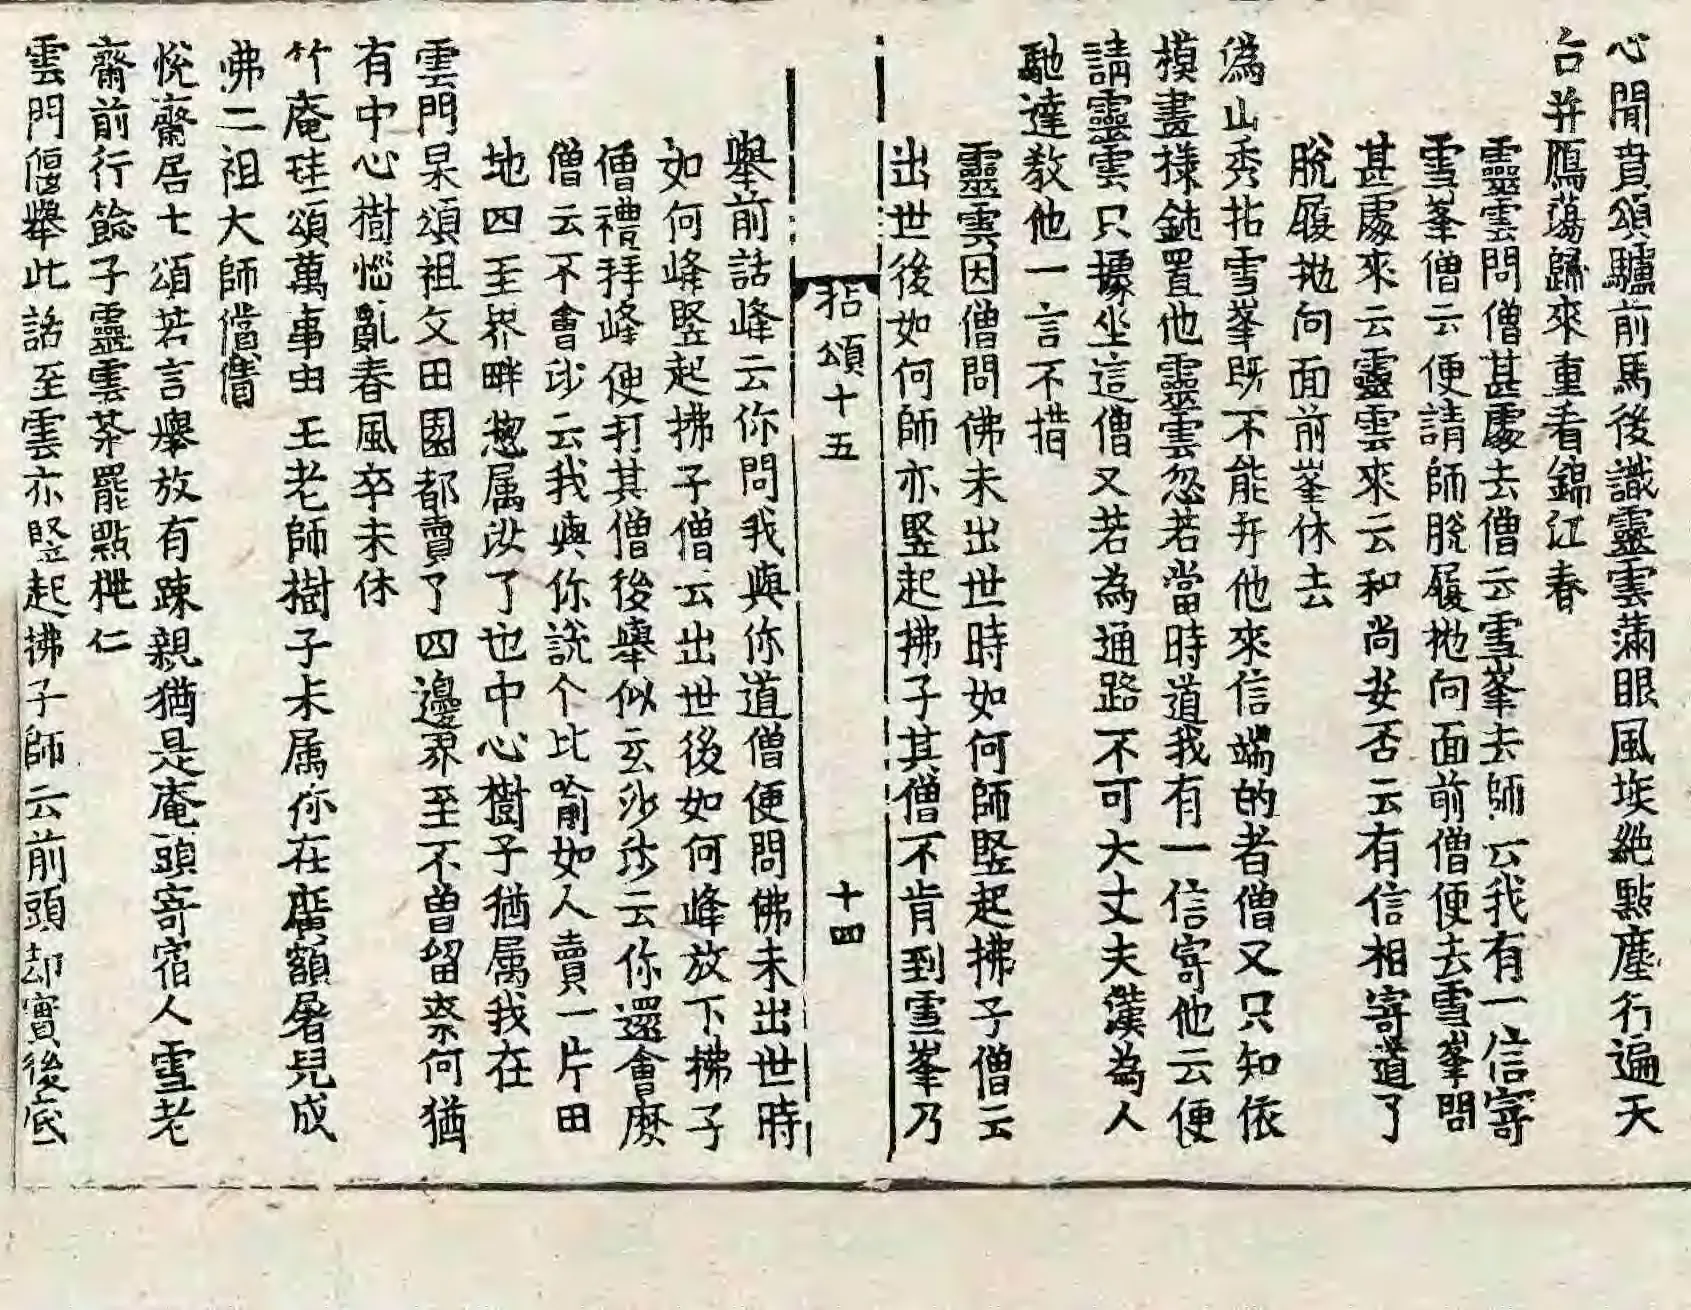 心聞賁頌驢前馬後識靈雲滿眼風埃絶點塵行遍天
台并鴈蕩歸來重看錦江春
靈雲問僧甚處去僧云雪峯去師云我有一信寄
雪峯僧云便請師脫履抛向面前僧便去雪峯問
甚處來云靈雲來云和尚安否云有信相寄道了
脫履抛向面前峯休去
為山秀拈雪峯既不能弁他來信端的者僧又只知依
模畫樣鈍置他靈雲忽若當時道我有一信寄他云便
請靈雲只據坐這僧又若為通路不可大丈夫漢為人
馳達教他一言不措
靈雲因僧問佛未出世時如何師竪起拂子僧云
出世後如何師亦竪起拂子其僧不肯到雪峯乃
拈頌十五 十四
舉前話峰云你問我與你道僧便問佛未出世時
如何峰竪起拂子僧云出世後如何峰放下拂子
僧禮拜峰便打其僧後舉似玄沙沙云你還會麼
僧云不會沙云我與你說个比喻如人賣一片田
地四至界畔惣属汝了也中心樹子猶属我在
雲門杲頌祖父田園都賣了四邊界至不曾留奈何猶
有中心樹惱亂春風卒未休
竹庵珪頌萬事由王老師樹子未属你在廣額屠兒成
佛二祖大師償債
悅齋居士頌若言舉放有踈親猶是庵頭寄宿人雪老
齋前行餤子靈雲茶罷點枇仁
雲門偃舉此話至雲亦竪起拂子師云前頭却實後底